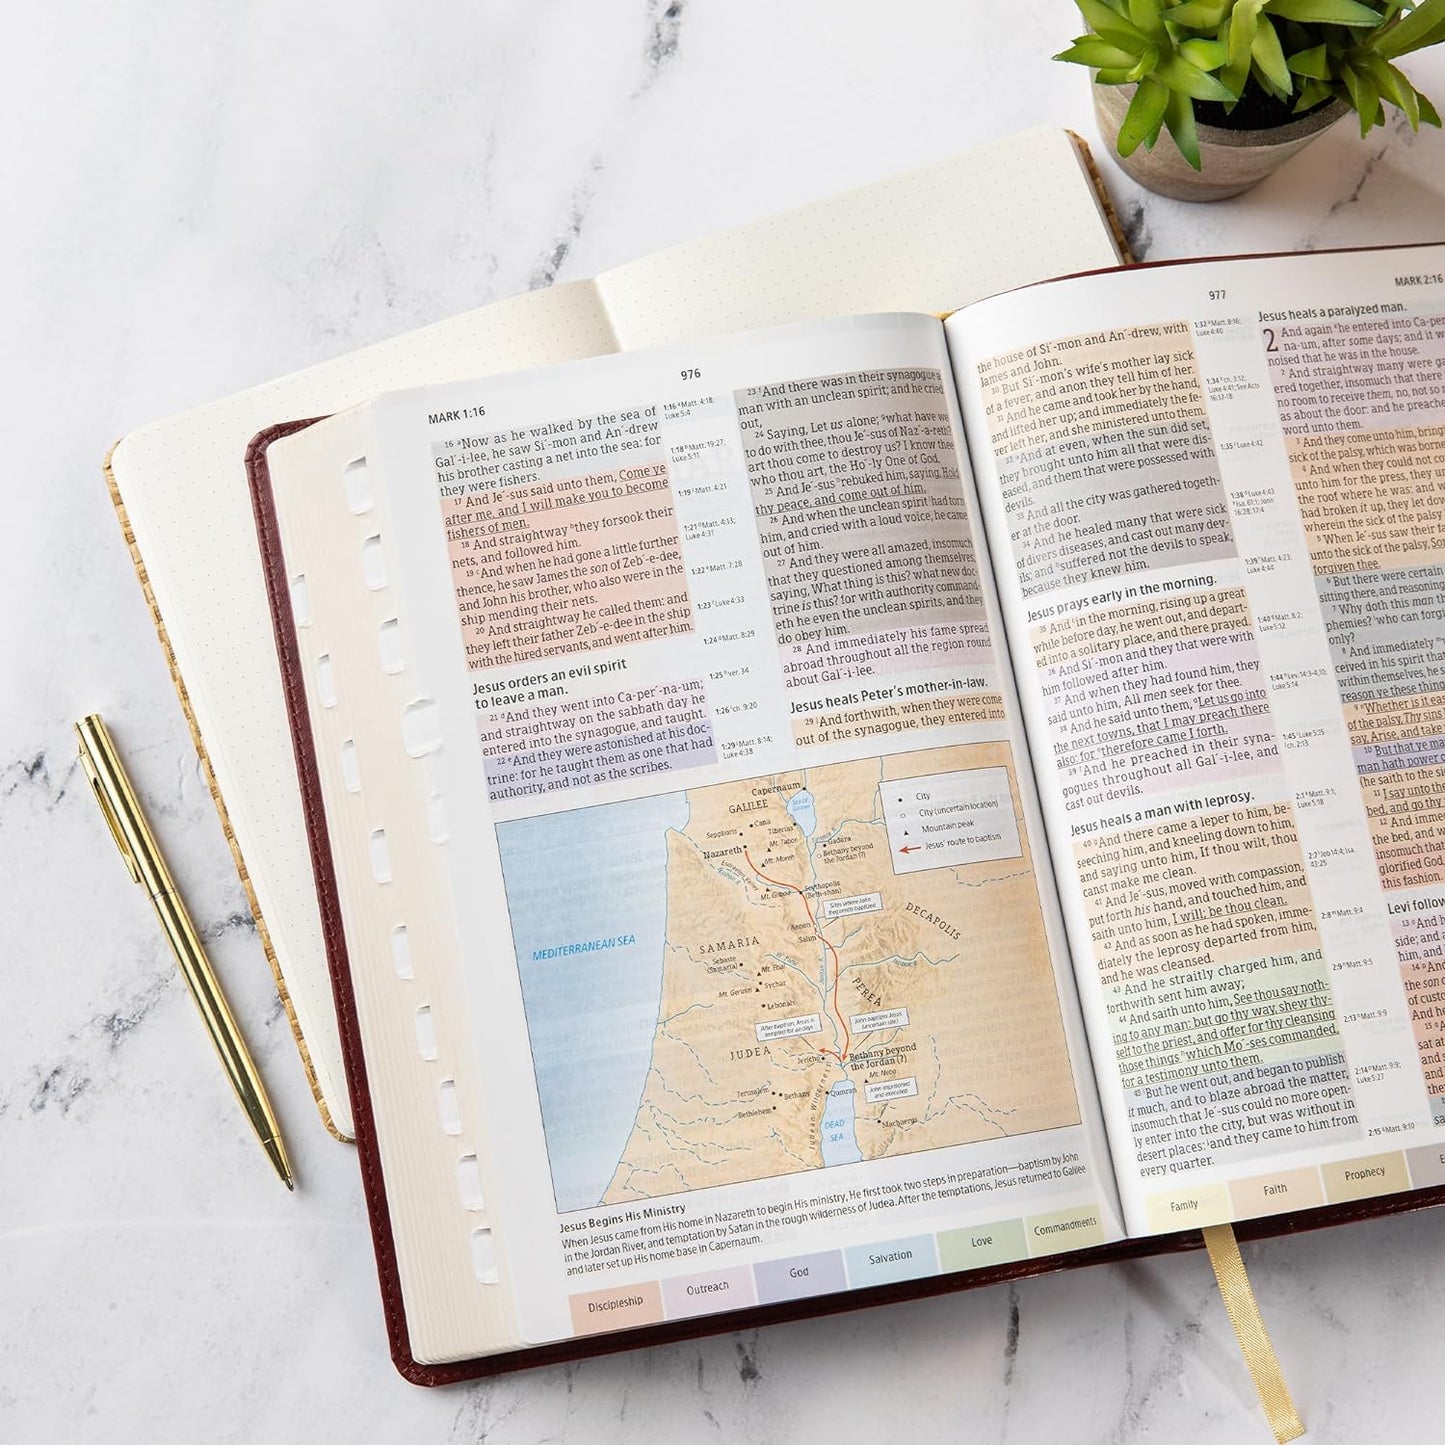 976
MARK 1:16
16 aNow as he walked by the sea of
Gal´-i-lee, he saw Si´-mon and An´-drew
his brother casting a net into the sea: for
they were fishers.
17 And Je´-sus said unto them, Come ye
after me, and I will make you to become
fishers of men.
18 And straightway they forsook their
nets, and followed him.
19 And when he had gone a little further
thence, he saw James the son of Zeb´-e-dee,
and John his brother, who also were in the
ship mending their nets.
20 And straightway he called them: and
they left their father Zeb´-e-dee in the ship
with the hired servants, and went after him.
Jesus orders an evil spirit
to leave a man.
21 dAnd they went into Ca-per´-na-um;
and straightway on the sabbath day he
entered into the synagogue, and taught.
22 eAnd they were astonished at his doc-
trine: for he taught them as one that had
authority, and not as the scribes.
1:16 Matt. 4:18;
Luke 5:4
1:18 Matt. 19:27;
Luke 5:11
1:19 Matt. 4:21
1:21 Matt. 4:13;
Luke 4:31
1:22 Matt. 7:28
1:23 Luke 4:33
1:24 Matt. 8:29
1:25 ver. 34
1:26 ch. 9:20
1:29 Matt. 8:14;
Luke 4:38
23 And there was in their synagogue a
man with an unclean spirit; and he cried
out,
24 Saying, Let us alone; what have we
to do with thee, thou Je´-sus of Naz´-a-reth?
art thou come to destroy us? I know thee
who thou art, the Ho´-ly One of God.
25 And Je´-sus rebuked him, saying, Hold
thy peace, and come out of him.
26 And when the unclean spirit had torn
him, and cried with a loud voice, he came
out of him.
27 And they were all amazed, insomuch
that they questioned among themselves,
saying, What thing is this? what new doc-
trine is this? for with authority command-
eth he even the unclean spirits, and they
do obey him.
28 And immediately his fame spread
abroad throughout all the region round
about Gal´-i-lee.
Jesus heals Peter's mother-in-law.
29 And forthwith, when they were come
out of the synagogue, they entered into
City
City (uncertain location)
Mountain peak
Jesus' route to baptism
Capernaum
GALILEE
Sea of
Galilee
Cana
Sepphoris
Tiberias
Mt. Tabor
Gadara
Nazareth
Mt. Moreh
Bethany beyond
the Jordan (?)
Mt. Gilboa
Scythopolis
(Beth-shan)
Sites where John
frequently baptized
DECAPOLIS
Aenon
Salim
MEDITERRANEAN SEA
SAMARIA
Sebaste
(Samaria)
Mt. Ebal
Mt. Gerizim
Sychar
Lebonah
PEREA
After baptism, Jesus is
tempted for 40 days
John baptizes Jesus
(uncertain site)
JUDEA
Jericho
Bethany beyond
the Jordan (?)
Mt. Nebo
John imprisoned
and executed
Jerusalem
Bethany
Qumran
Bethlehem
Judean Wilderness
DEAD
SEA
Machaerus
Jesus Begins His Ministry
When Jesus came from His home in Nazareth to begin His ministry, He first took two steps in preparation—baptism by John
in the Jordan River, and temptation by Satan in the rough wilderness of Judea. After the temptations, Jesus returned to Galilee
and later set up His home base in Capernaum.
Discipleship
Outreach
God
Salvation
Love
Commandments
977
MARK 2:16
the house of Si´-mon and An´-drew, with
James and John.
30 But Si´-mon's wife's mother lay sick
of a fever, and anon they tell him of her.
31 And he came and took her by the hand,
and lifted her up; and immediately the fe-
ver left her, and she ministered unto them.
32 And at even, when the sun did set,
they brought unto him all that were dis-
eased, and them that were possessed with
devils.
33 And all the city was gathered togeth-
er at the door.
34 And he healed many that were sick
of divers diseases, and cast out many dev-
ils; and suffered not the devils to speak,
because they knew him.
Jesus prays early in the morning.
35 And in the morning, rising up a great
while before day, he went out, and depart-
ed into a solitary place, and there prayed.
36 And Si´-mon and they that were with
him followed after him.
37 And when they had found him, they
said unto him, All men seek for thee.
38 And he said unto them, Let us go into
the next towns, that I may preach there
also: for therefore came I forth.
39 And he preached in their syna-
gogues throughout all Gal´-i-lee, and
cast out devils.
Jesus heals a man with leprosy.
40 And there came a leper to him, be-
seeching him, and kneeling down to him,
and saying unto him, If thou wilt, thou
canst make me clean.
41 And Je´-sus, moved with compassion,
put forth his hand, and touched him, and
saith unto him, I will; be thou clean.
42 And as soon as he had spoken, imme-
diately the leprosy departed from him,
and he was cleansed.
43 And he straitly charged him, and
forthwith sent him away;
44 And saith unto him, See thou say noth-
ing to any man: but go thy way, shew thy-
self to the priest, and offer for thy cleansing
those things which Mo´-ses commanded,
for a testimony unto them.
45 But he went out, and began to publish
it much, and to blaze abroad the matter,
insomuch that Je´-sus could no more open-
ly enter into the city, but was without in
desert places: and they came to him from
every quarter.
1:32 Matt. 8:16;
Luke 4:40
1:34 ch. 3:12;
Luke 4:41; See Acts
16:17-18
1:35 Luke 4:42
1:38 Luke 4:43
Isa. 61:1; John
16:28; 17:4
1:39 Matt. 4:23;
Luke 4:44
1:40 Matt. 8:2;
Luke 5:12
1:44 Lev. 14:3-4,10;
Luke 5:14
1:45 Luke 5:15
ch. 2:13
2:1 Matt. 9:1;
Luke 5:18
2:7 Job 14:4; Isa.
43:25
2:8 Matt. 9:4
2:9 Matt. 9:5
2:13 Matt. 9:9
2:14 Matt. 9:9;
Luke 5:27
2:15 Matt. 9:10
Jesus heals a paralyzed man.
2 And again he entered into Ca-per
na-um, after some days; and it w
noised that he was in the house.
2 And straightway many were ga
ered together, insomuch that there
no room to receive them, no, not so
as about the door: and he preach
word unto them.
3 And they come unto him, bring
sick of the palsy, which was born
4 And when they could not co
unto him for the press, they u
the roof where he was: and w
had broken it up, they let dow
wherein the sick of the palsy
5 When Je´-sus saw their fa
unto the sick of the palsy, Son
forgiven thee.
6 But there were certain
sitting there, and reasoning
7 Why doth this man th
phemies? who can forgiv
only?
8 And immediately
ceived in his spirit that
within themselves, he s
reason ye these thing
9 Whether is it easi
of the palsy, Thy sins
say, Arise, and take
10 But that ye ma
man hath power o
(he saith to the si
11 I say unto the
bed, and go thy
12 And immed
the bed, and w
insomuch tha
glorified God
this fashion.
Levi follow
13 And h
side; and a
him, and
14 And
of custo
And he
15 A
sat at
and
Family
Faith
Prophecy